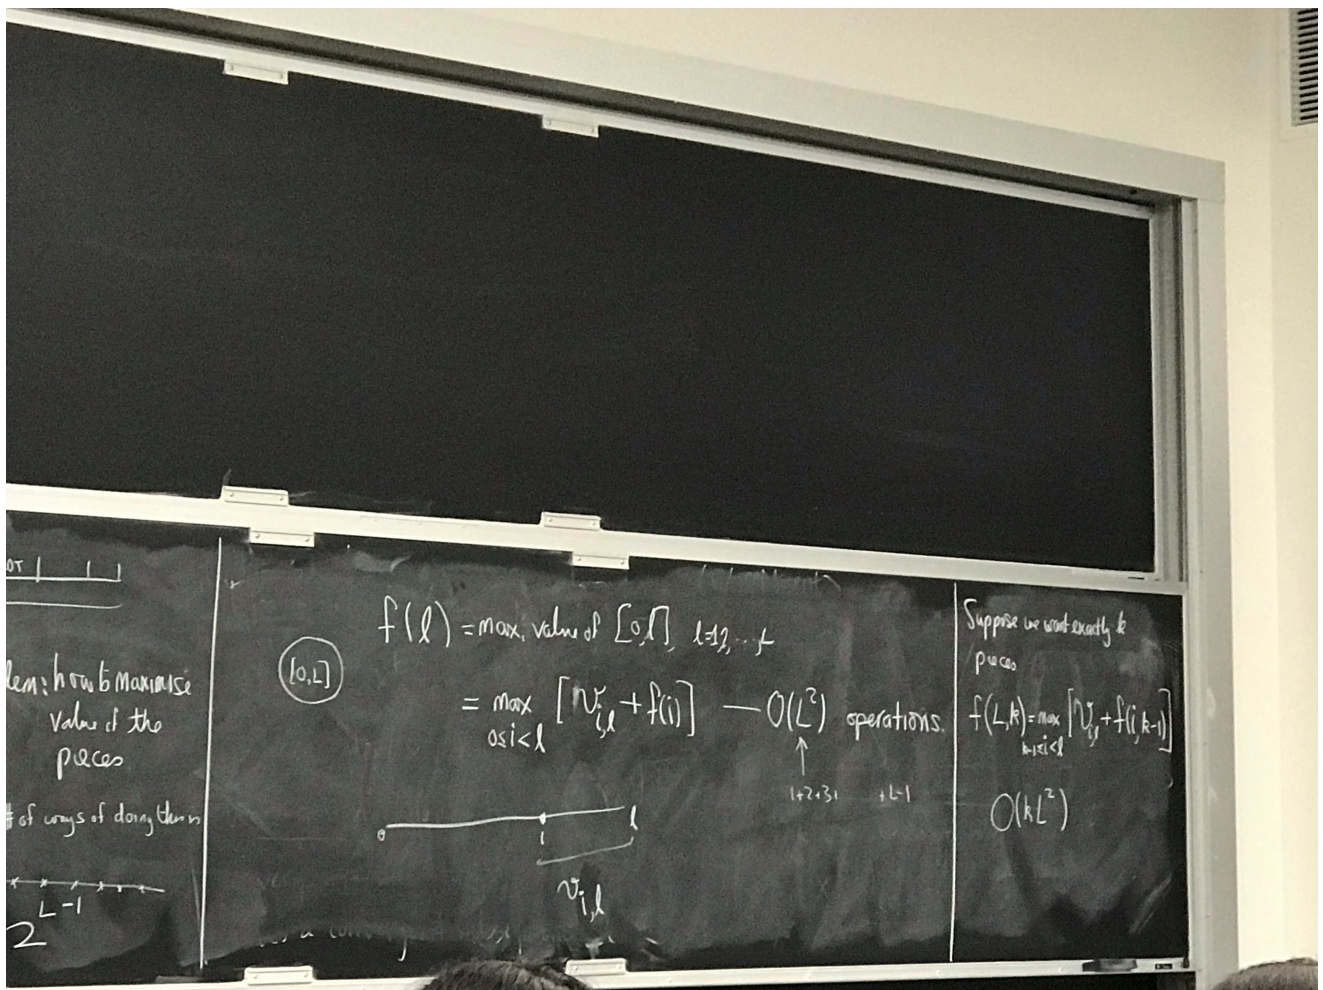 OT
lem: how to maximise
value of the
pieces
# of ways of doing this is
L-1
2
f(l) = max. value of [0,l], l=1,2,...,L
[0,L]
= max [v_{i,l} + f(i)] — O(L²) operations.
0≤i<l
↑
1+2+3+ +L-1
0 i l
v_{i,l}
Suppose we want exactly k
pieces
f(L,k) = max [v_{i,l} + f(i,k-1)]
k-1≤i<l
O(kL²)